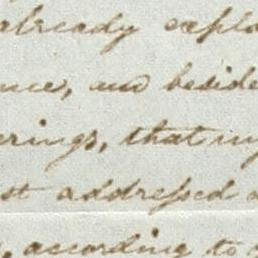 already expla
nce, and beside
erings, that my
st addressed a
, according to